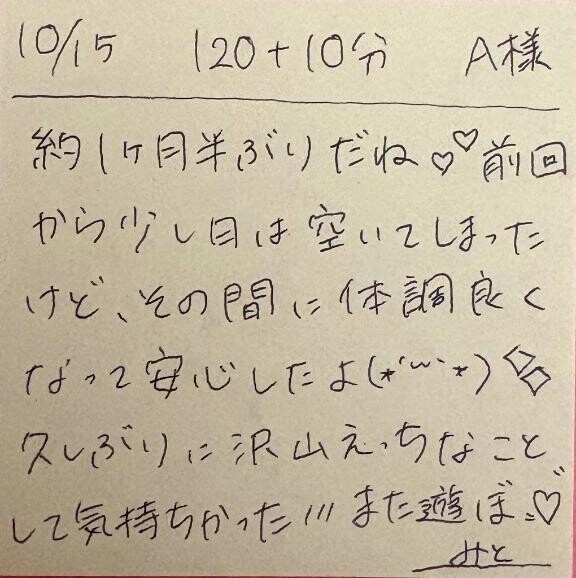 10/15 120+10分 A様
約1ヶ月半ぶりだね♡♡前回
から少し日は空いてしまった
けど、その間に体調良く
なって安心したよ(*´꒳`*)◇◇
久しぶりに沢山えっちなこと
して気持ちかった!!!また遊ぼ♡
みと